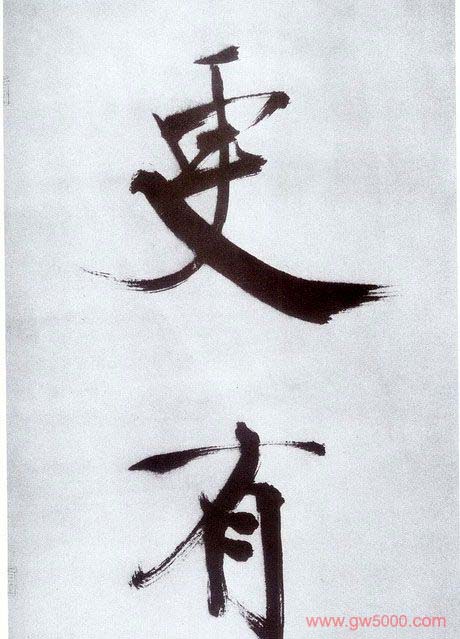 更
有
www.gw5000.com